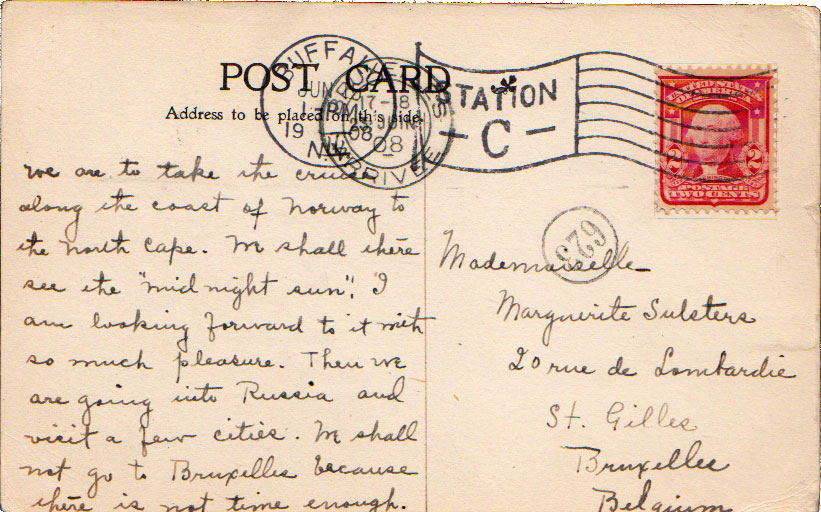 POST CARD
Address to be placed on this side.
BUFFALO
JUN
1-PM
1908
N.Y.
17-18
JUIN
08
ARRIVÉE
STATION
C
UNITED STATES
OF AMERICA
2 2
POSTAGE
TWO CENTS
623
we are to take the cruise
along the coast of Norway to
the North Cape. We shall there
see the "midnight sun". I
am looking forward to it with
so much pleasure. Then we
are going into Russia and
visit a few cities. We shall
not go to Bruxelles because
there is not time enough.
Mademoiselle
Marguerite Sulsters
20 rue de Lombardie
St. Gilles
Bruxelles
Belgium